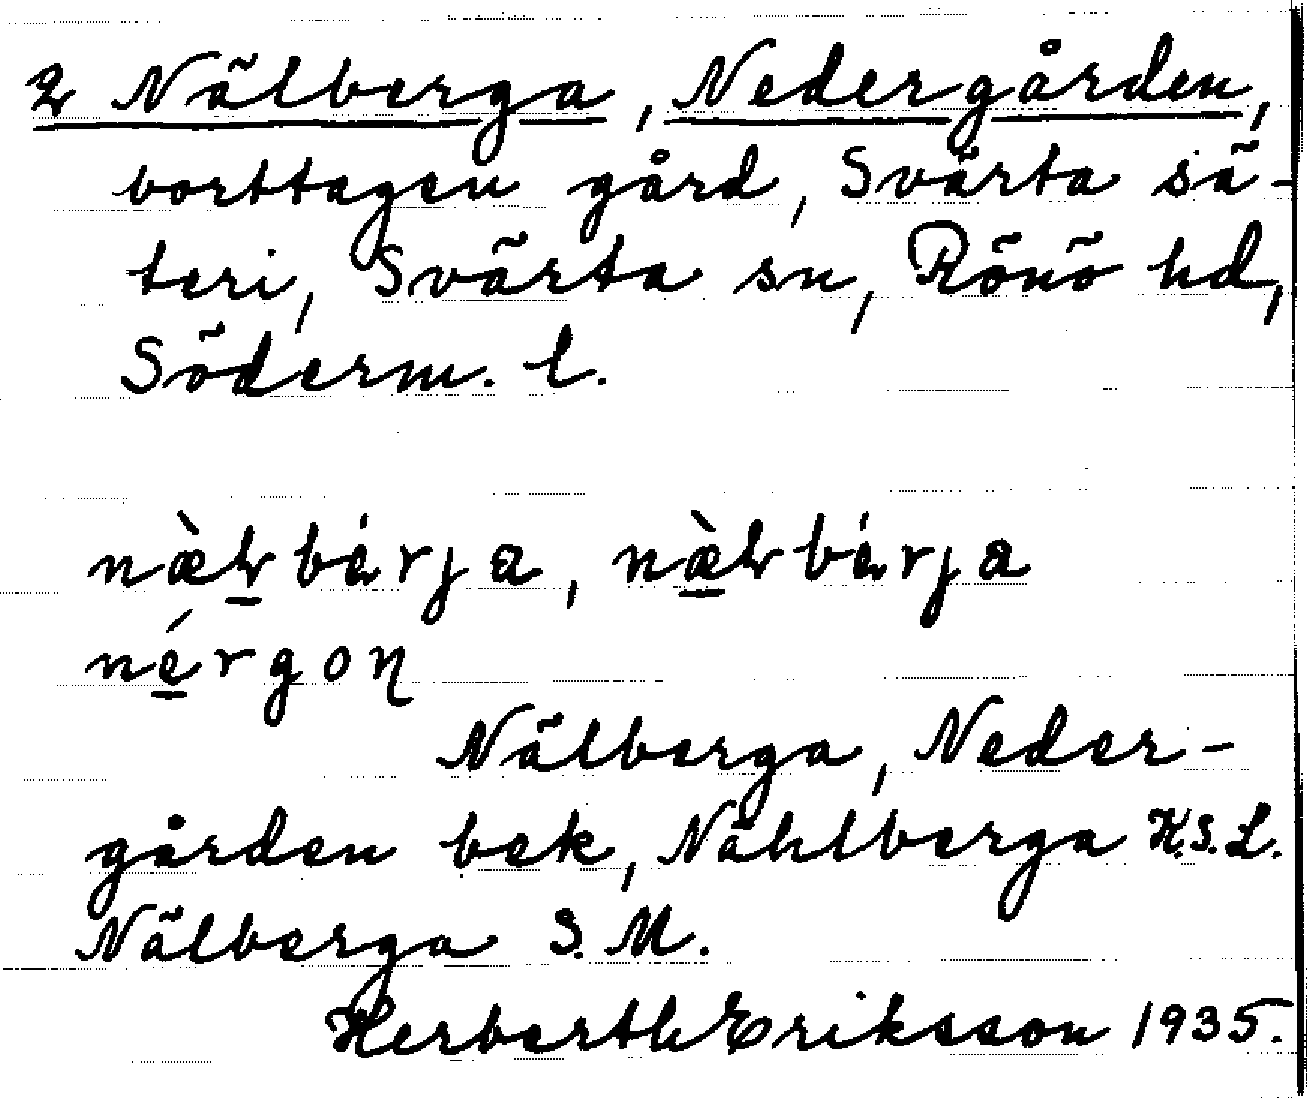 2 Nälberga, Nedergården,
borttagen gård, Svärta sä-
teri, Svärta sn, Rönö hd,
Söderm. l.
nærgon
Nälberga, Neder-
gården bek, Nählberga H.S.L.
Nälberga S.M.
Herberth Eriksson 1935.